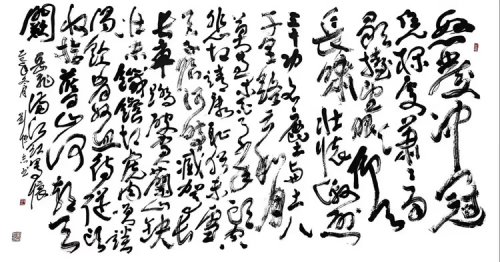 怒髮冲冠
憑欄處瀟瀟雨
歇抬望眼仰天
長嘯壯懷激烈
三十功名塵與土八
千里路雲和月
莫等閑白了少年頭空
悲切靖康恥猶未雪
臣子恨何時滅駕長
車踏破賀蘭山缺
壯志饑餐胡虜肉笑談
渴飲匈奴血待從頭
收拾舊山河朝天
闕
岳飛滿江紅寫懷